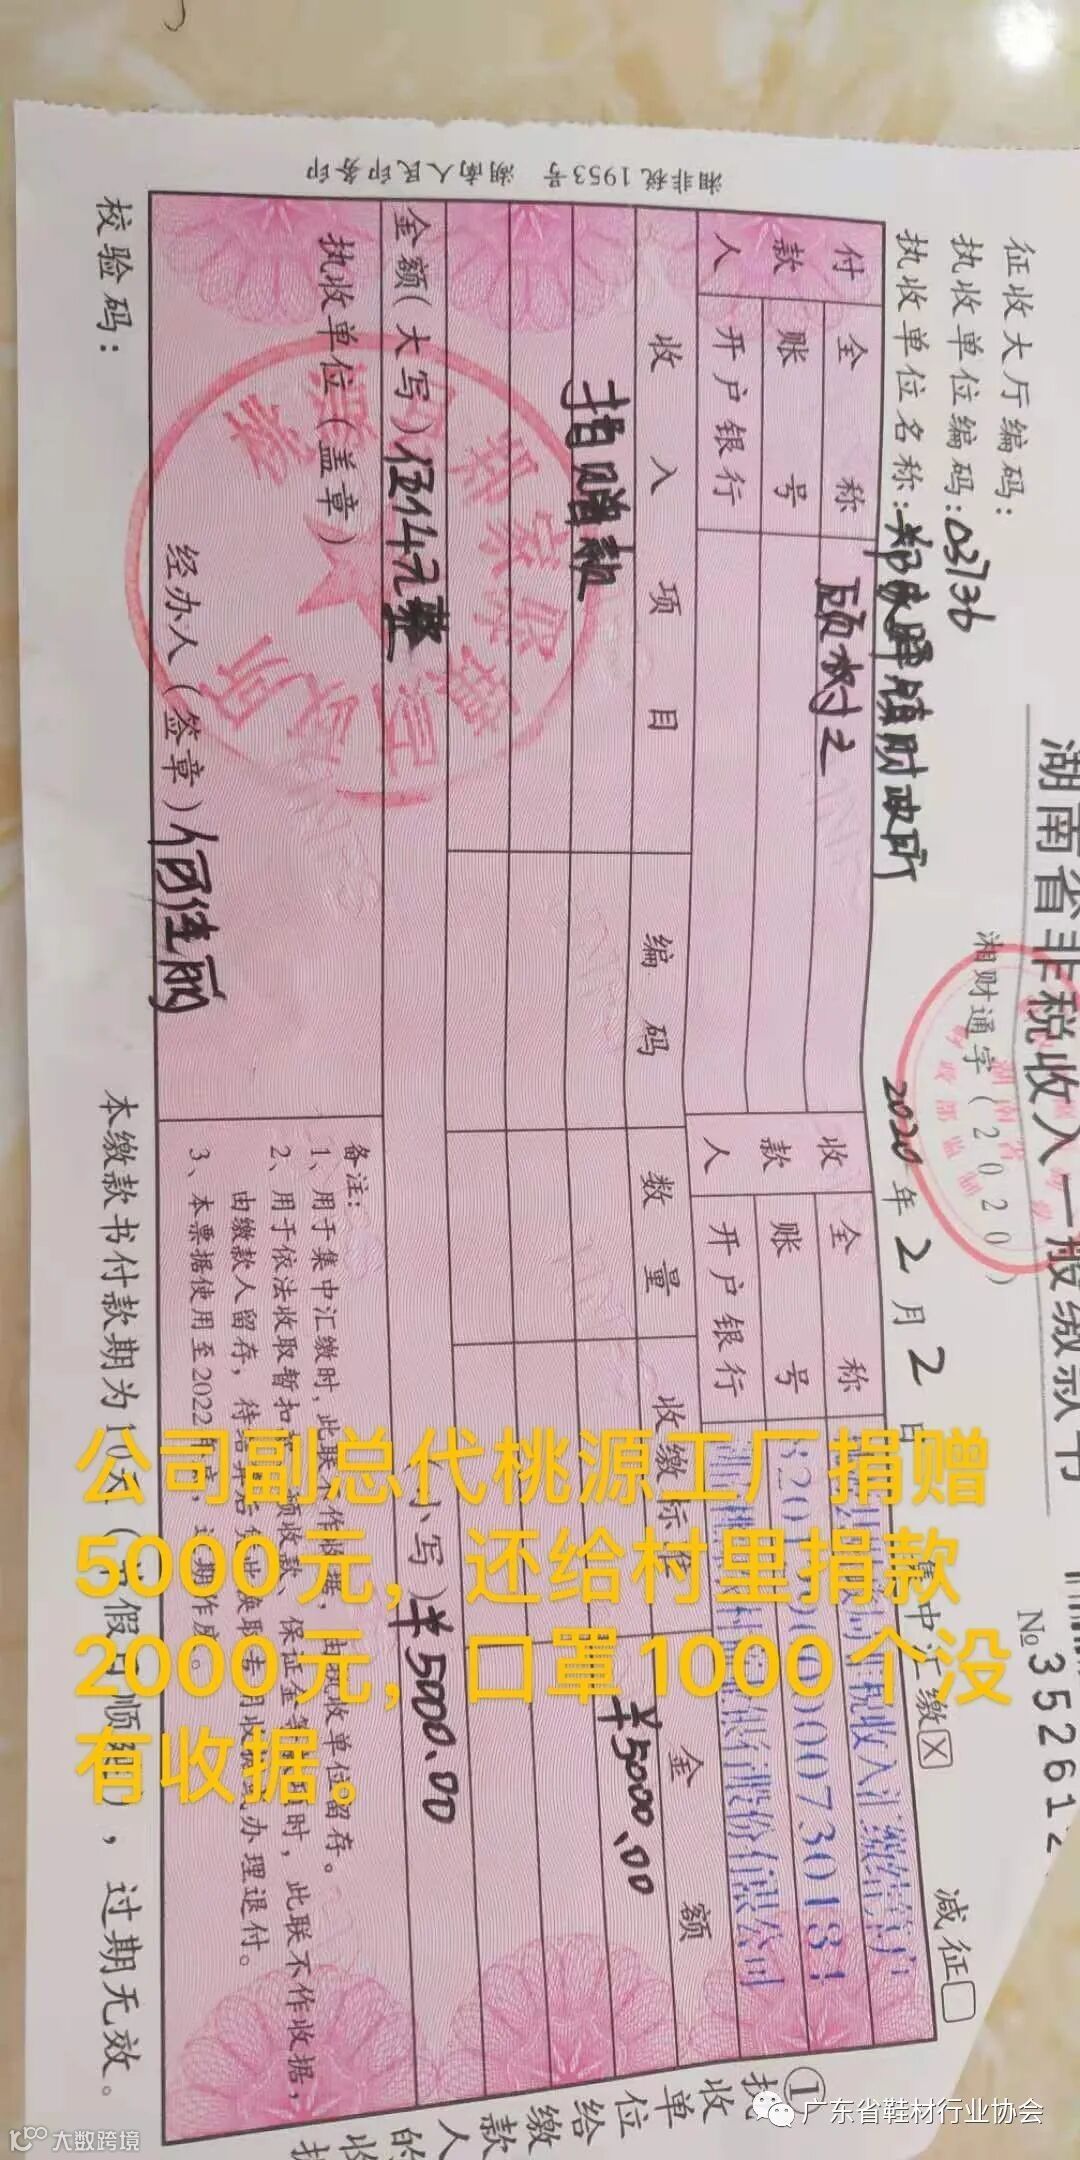 湖南省非税收入一般缴款书
湘财通字(2020)
№352612
征收大厅编码：
执收单位编码：03736
执收单位名称：郑家驿镇财政所
2020年2月2日
集中汇缴☒
减征□
付款人
全称
顾树之
账号
开户银行
收款人
全称
税收入汇缴结算户
账号
开户银行
银行股份有限公司
收入项目
编码
数量
收缴标准
金额
捐赠款
¥5000.00
金额(大写)伍仟元整
小写)¥5000.00
执收单位(盖章)
经办人(签章)何佳丽
备注：
1、用于集中汇缴时，此联不作收据，由执收单位留存。
2、用于依法收取暂扣款、预收款、保证金等款项时，此联不作收据，
由缴款人留存，待结算后凭此换取专用收据或办理退付。
3、本票据使用至2022年底，过期作废。
校验码：
本缴款书付款期为10天(节假日顺延)，过期无效。
湘非税1953号 湖南人民印务印
①执收单位给缴款人的收据
公司副总代桃源工厂捐赠
5000元，还给村里捐款
2000元，口罩1000个没
有收据。
广东省鞋材行业协会
大数跨境